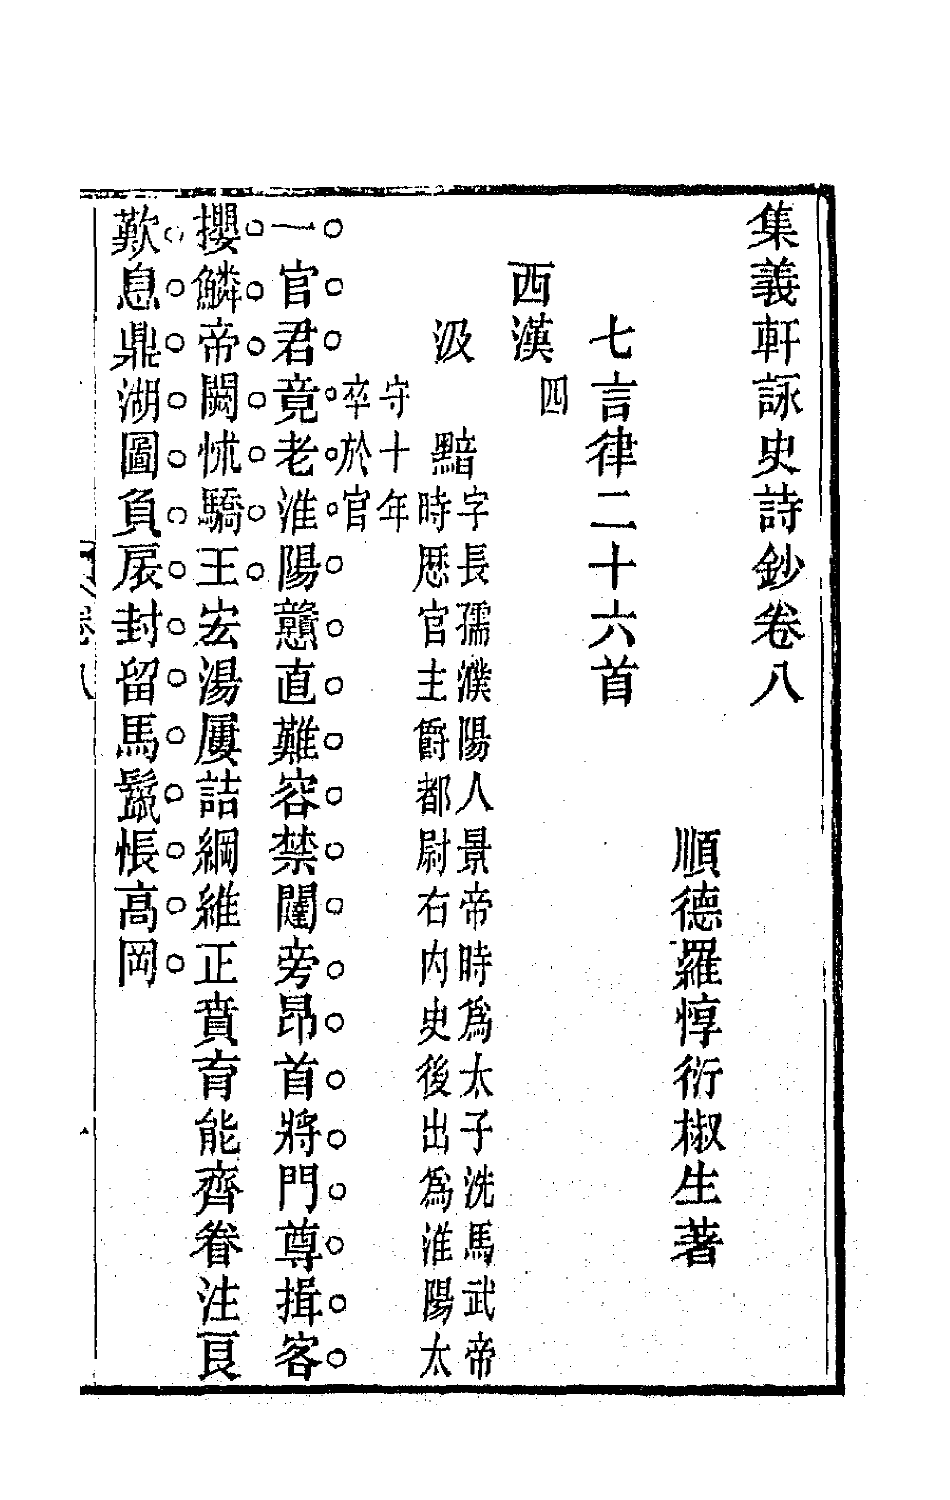 集義軒詠史詩鈔卷八
順德羅惇衍椒生著
七言律二十六首
西漢四
汲黯
字長孺濮陽人景帝時爲太子洗馬武帝
時歷官主爵都尉右內史後出爲淮陽太
守十年
卒於官
一官君竟老淮陽戇直難容禁闥旁昂首將門尊揖客
攖鱗帝闕怵驕王宏湯屢詰綱維正賁育能齊眷注長
歎息鼎湖圖負扆封留馬鬣悵高岡
卷八